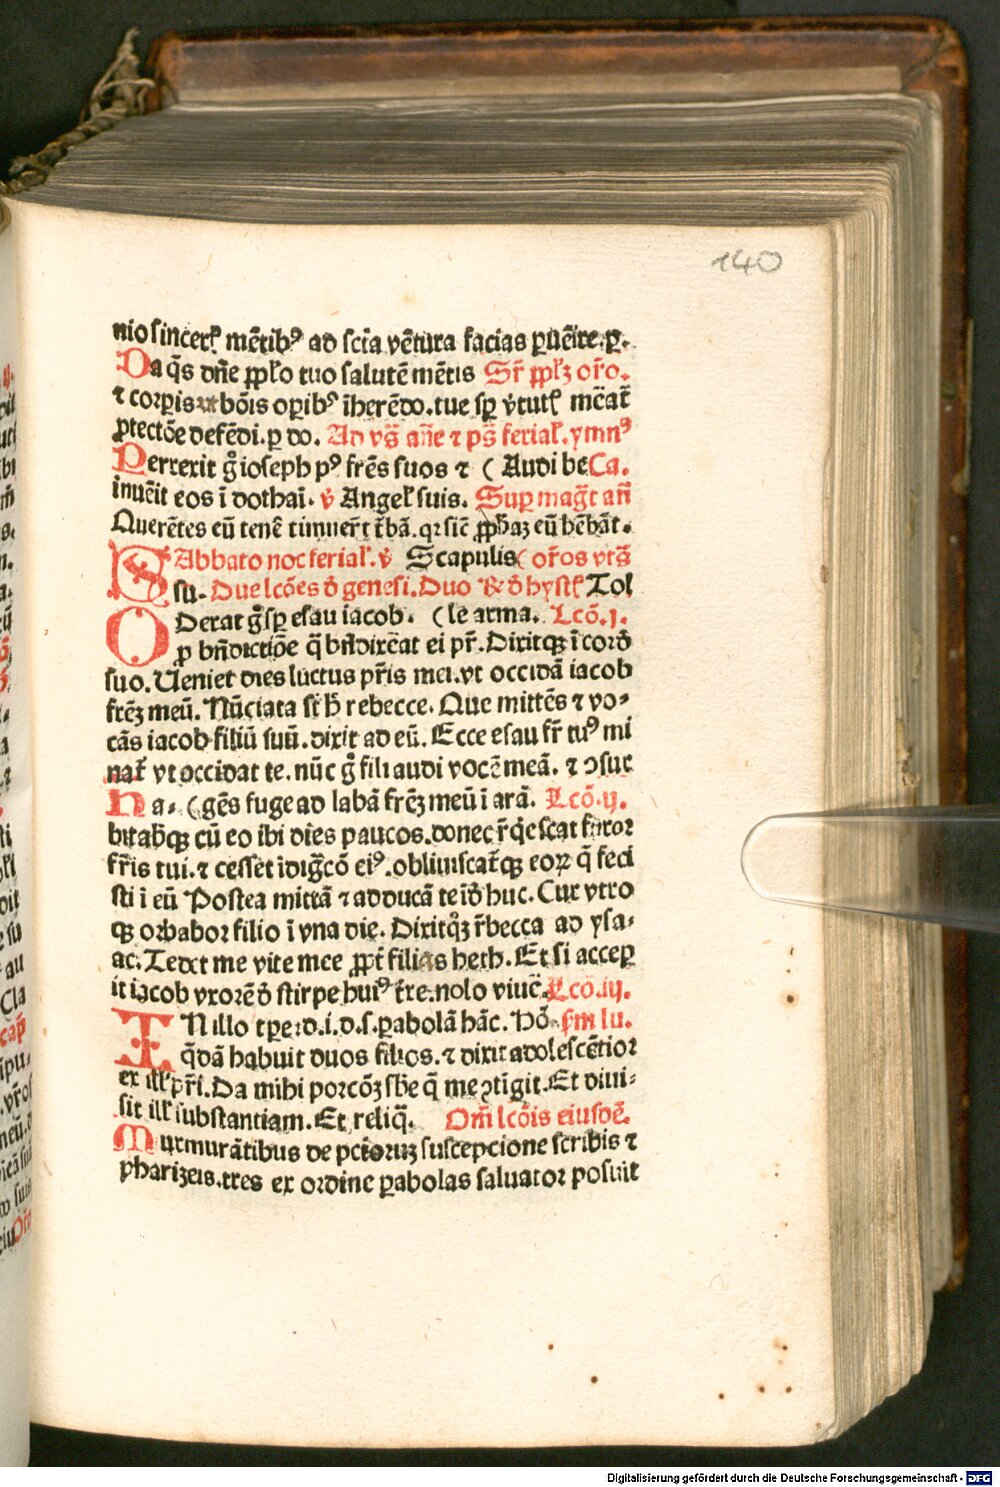 140
nio sincerꝭ mētibꝰ ad scīa vētura facias ꝑuēire.ꝑ.
Da q̄s dn̄e ꝓplo tuo salutē mētis Sr̄ ꝓpłꝫ oro.
⁊ corꝑis ut bōis oꝑibꝰ īherēdo.tue sꝑ v̓tutꝭ mēat̄
ꝓtectōe defēdi.ꝑ do. Ad vꝫ an̄e ⁊ pꝫ ferial̓.ymnꝰ
Perrexit g̊ ioseph pꝰ frēs suos ⁊ ( Audi be Ca.
inuēit eos ī dothaī. v̓ Angel̓ suis. Suꝑ maḡt an̄
Querētes eū tenē timuer̄t t̄bā.qꝛ sīc ꝓphāꝫ eū hēbāt.
SAbbato noc ferial̓.v̓ Scapulis( or̓os vtꝫ
su. Due lcōes d̓ genesi.Duo R̓ d̓ hystꝭ Tol
ODerat g̊ sꝑ esau iacob. (le arma. Lcō.j.
ꝓ bn̄dictiōe q̄ bn̄dixēat ei pr̄.Dixitqꝫ ī cord̓
suo.Ueniet dies luctus pr̄is mei.vt occidā iacob
frēꝫ meū.Nūciata st̄ h̄ rebecce.Que mittēs ⁊ vo⸗
cās iacob filiū suū.dixit ad eū.Ecce esau fr̄ tuꝰ mi
nat̄ vt occidat te.nūc g̊ fili audi vocē meā.⁊ ꝯsur
ha⸗ (gēs fuge ad labā frēꝫ meū ī arā. Lcō.ij.
bitabꝫqꝫ cū eo ibi dies paucos.donec r̄q̓escat furor
fr̄is tui.⁊ cesset īdiḡcō eiꝰ.obliuiscat̄qꝫ eoꝝ q̄ feci
sti ī eū Postea mittā ⁊ adducā te īd̓ huc.Cur vtro
qꝫ orbabor filio ī vna die.Dixitqꝫ r̄becca ad ysa⸗
ac.Tedet me vite mee ꝓpt̄ filias heth.Et si acceꝑ
it iacob vxorē d̓ stirpe huiꝰ t̄re.nolo viuē.Lcō.iij.
IN illo tꝑe.d.i.d.s.ꝑabolā hāc.Hō. sm lu.
q̄dā habuit duos filios.⁊ dixit adolescētior
ex illꝭ pr̄i.Da mihi porcōꝫ sbe q̄ me ꝯtīgit.Et diui⸗
sit illꝭ substantiam.Et reliq̄. Om̄ lcōis eiusdē.
Murmurātibus de pctōruꝫ suscepcione scribis ⁊
pharizeis.tres ex ordine ꝑabolas saluator posuit
Digitalisierung gefördert durch die Deutsche Forschungsgemeinschaft - DFG